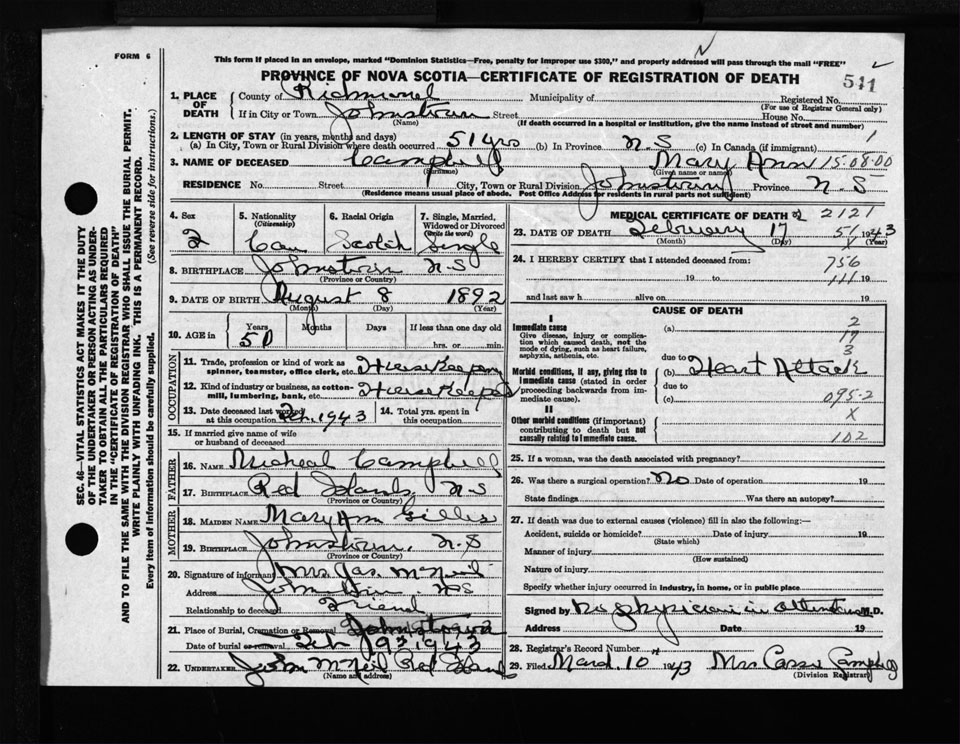 FORM 6
This form if placed in an envelope, marked "Dominion Statistics—Free, penalty for improper use $300," and properly addressed will pass through the mail "FREE"
PROVINCE OF NOVA SCOTIA—CERTIFICATE OF REGISTRATION OF DEATH
511
1. PLACE OF DEATH
County of Richmond Municipality of Registered No.
(For use of Registrar General only)
If in City or Town Johnstown Street House No.
(Name) (If death occurred in a hospital or institution, give the name instead of street and number)
2. LENGTH OF STAY (in years, months and days)
(a) In City, Town or Rural Division where death occurred 51 yrs (b) In Province N.S (c) In Canada (if immigrant) 1
3. NAME OF DECEASED Campbell Mary Ann 15-08-00
(Surname) (Given name or names)
RESIDENCE No. Street City, Town or Rural Division Johnstown Province N.S
(Residence means usual place of abode. Post Office Address for residents in rural parts not sufficient)
4. Sex 2
5. Nationality (Citizenship) Can
6. Racial Origin Scotch
7. Single, Married, Widowed or Divorced (Write the word) Single
8. BIRTHPLACE Johnstown N.S
(Province or Country)
9. DATE OF BIRTH August 8 1892
(Month) (Day) (Year)
10. AGE in Years Months Days If less than one day old
50 hrs. or min.
OCCUPATION
11. Trade, profession or kind of work as spinner, teamster, office clerk, etc. HouseKeeper
12. Kind of industry or business, as cotton-mill, lumbering, bank, etc. HouseKeeper
13. Date deceased last worked at this occupation Feb. 1943
14. Total yrs. spent in this occupation
15. If married give name of wife or husband of deceased
FATHER
16. NAME Micheal Campbell
17. BIRTHPLACE Red Islands N S
MOTHER
18. MAIDEN NAME Mary Ann Gillis
19. BIRTHPLACE Johnstown, N.S
(Province or Country)
20. Signature of informant Mrs. Jas. McNeil
Address Johnstown NS
Relationship to deceased Friend
21. Place of Burial, Cremation or Removal Johnstown
Date of burial or removal Feb 19 1943
22. UNDERTAKER John McNeil Red Islands
(Name and address)
MEDICAL CERTIFICATE OF DEATH 2121
23. DATE OF DEATH February 17 1943
(Month) (Day) (Year)
24. I HEREBY CERTIFY that I attended deceased from: 756
19 to 111 19
and last saw h alive on 19
CAUSE OF DEATH
I
Immediate cause
Give disease, injury or complication which caused death, not the mode of dying, such as heart failure, asphyxia, asthenia, etc.
(a) 2
17
due to 3
Morbid conditions, if any, giving rise to immediate cause (stated in order proceeding backwards from immediate cause).
(b) Heart Attack
due to
(c) 095-2
II
Other morbid conditions (if important) contributing to death but not causally related to immediate cause.
X
102
25. If a woman, was the death associated with pregnancy?
26. Was there a surgical operation? No Date of operation 19
State findings Was there an autopsy?
27. If death was due to external causes (violence) fill in also the following:—
Accident, suicide or homicide? Date of injury 19
(State which)
Manner of injury
(How sustained)
Nature of injury
Specify whether injury occurred in industry, in home, or in public place
Signed by No physician in attendance M.D.
Address Date 19
28. Registrar's Record Number
29. Filed March 10 1943 Mrs Cassie Campbell
(Division Registrar)
SEC. 46—VITAL STATISTICS ACT MAKES IT THE DUTY
OF THE UNDERTAKER OR PERSON ACTING AS UNDER-
TAKER TO OBTAIN ALL THE PARTICULARS REQUIRED
IN THE "CERTIFICATE OF REGISTRATION OF DEATH"
AND TO FILE THE SAME WITH THE DIVISION REGISTRAR WHO SHALL ISSUE THE BURIAL PERMIT.
WRITE PLAINLY WITH UNFADING INK. THIS IS A PERMANENT RECORD.
Every item of information should be carefully supplied. (See reverse side for instructions.)